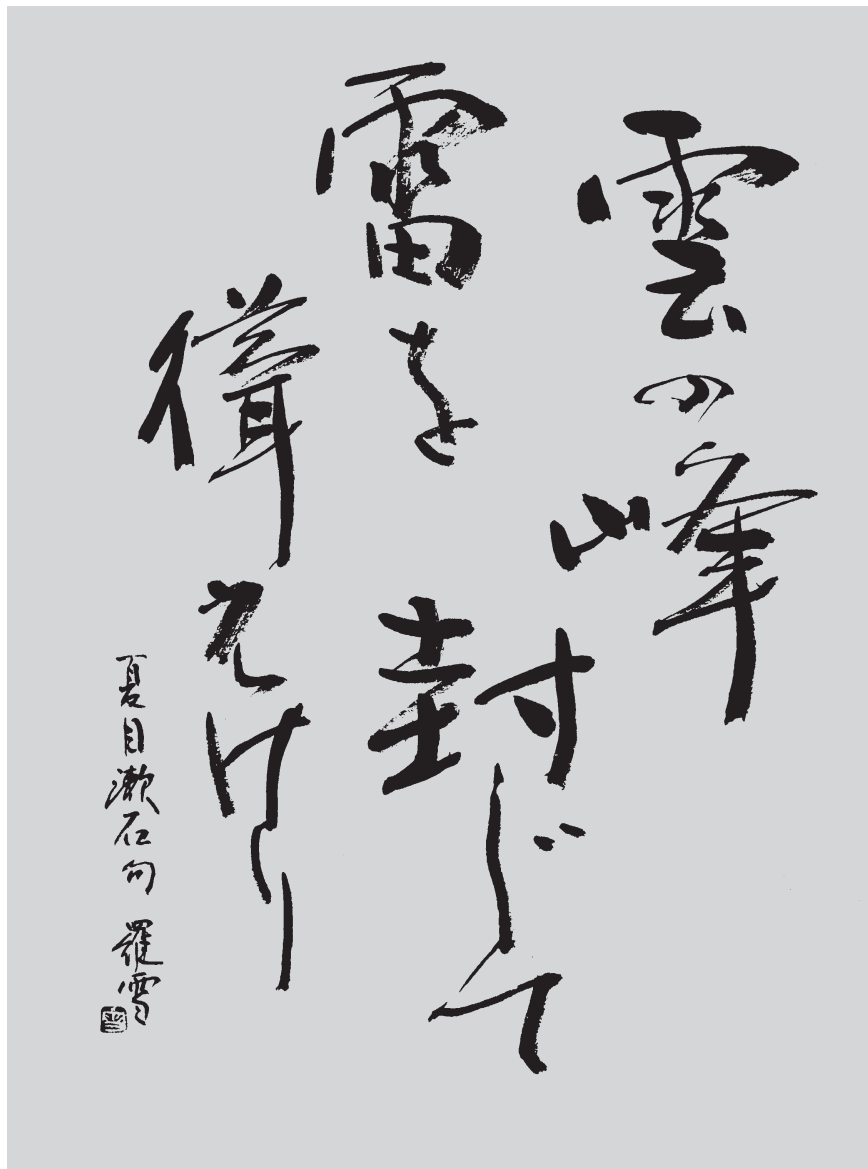 雲の峰
雷を封じて
聳えけり
夏目漱石句 羅雪